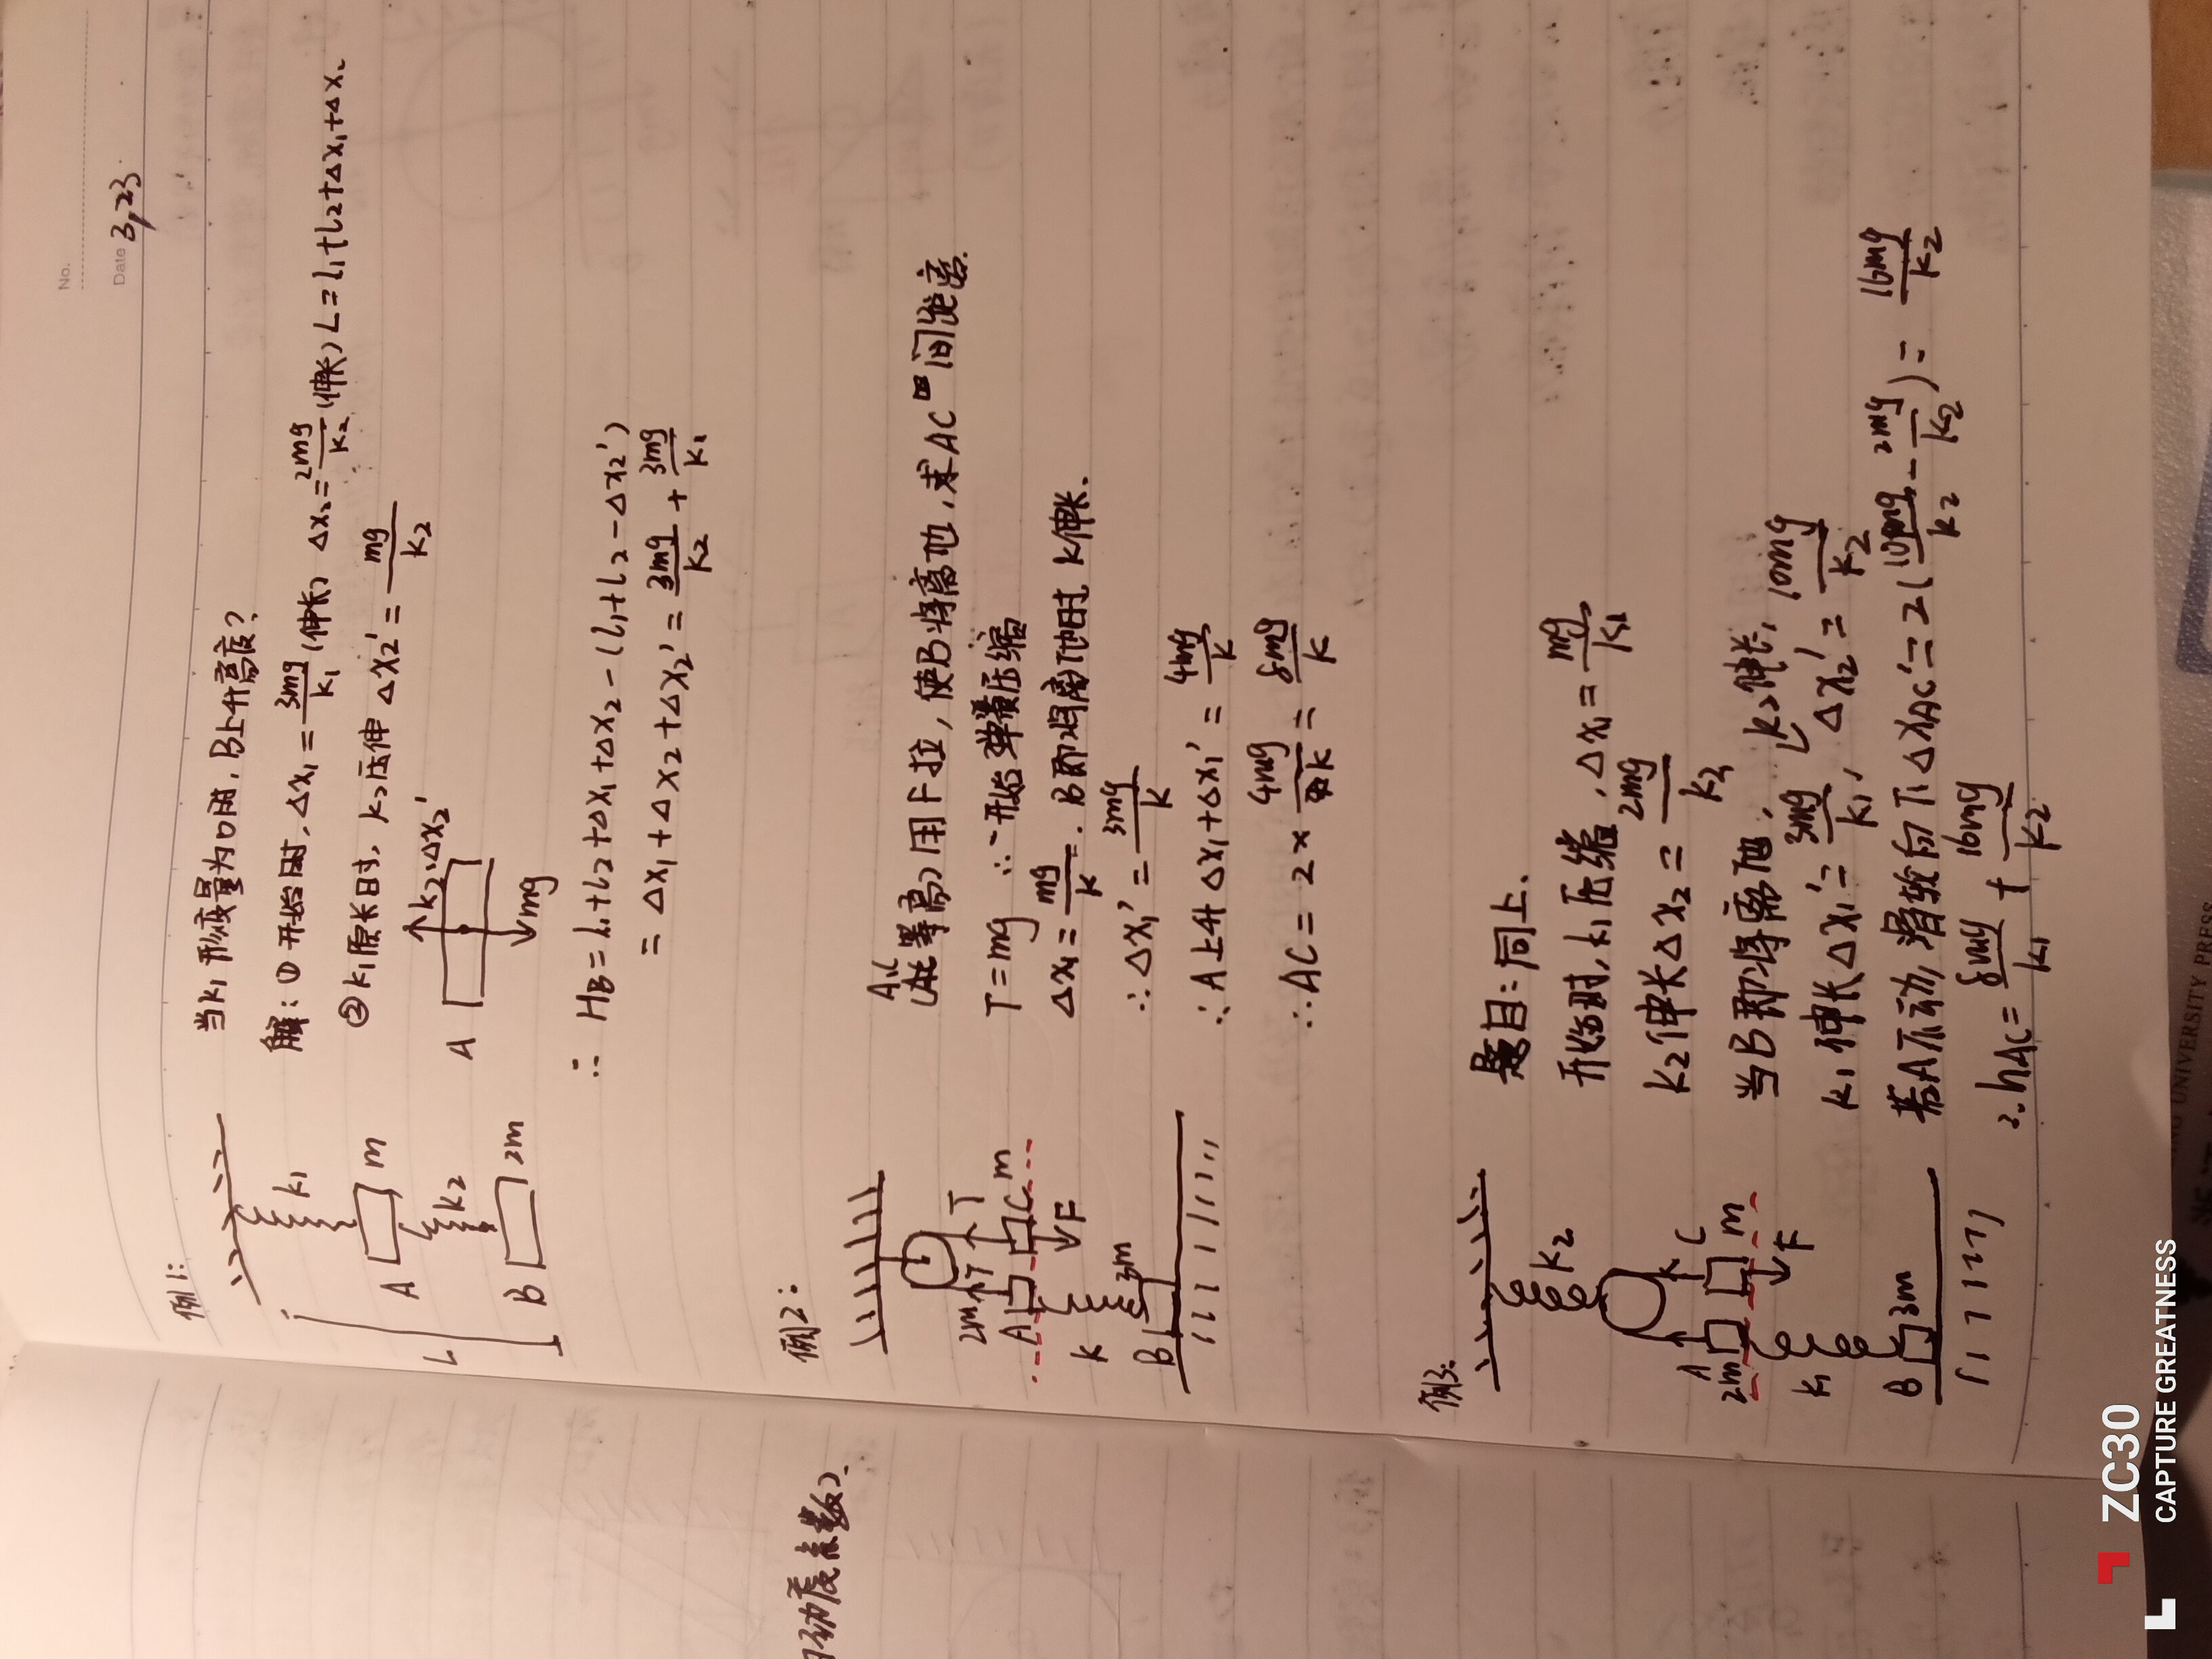 No.
Date 3,23
例1:
当k₁形变量为0时, B上升高度?
解: ① 开始时, Δx₁ = 3mg/k₁ (伸长) Δx₂ = 2mg/k₂ (伸长) L = l₁+l₂+Δx₁+Δx₂
② k₁原长时, k₂压伸 Δx₂' = mg/k₂
k₁
A m
k₂
B 2m
L
A
k₂·Δx₂'
mg
∴ HB = l₁+l₂+Δx₁+Δx₂-(l₁+l₂-Δx₂')
= Δx₁+Δx₂+Δx₂' = 3mg/k₂ + 3mg/k₁
例2:
A,C
(等高) 用F拉, 使B将离地, 求AC间距离.
T=mg ∴开始弹簧压缩
Δx₁ = mg/k. B即将离地时 k伸长.
∴ Δx₁' = 3mg/k
∴ A上升 Δx₁+Δx₁' = 4mg/k
∴ AC = 2× 4mg/k = 8mg/k
2m T T
A C m
F
k
B 3m
例3:
题目: 同上.
开始时, k₁压缩, Δx₁ = mg/k₁
k₂伸长 Δx₂ = 2mg/k₂
当B即将离地, k₂伸长,
k₁伸长 Δx₁' = 3mg/k₁, Δx₂' = 10mg/k₂
若A不动, 滑轮向下 ΔxAC' = 2(10mg/k₂ - 2mg/k₂) = 16mg/k₂
∴ hAC = 8mg/k₁ + 16mg/k₂
k₂
A C
2m m
F
k₁
B 3m
动度系数).
ZC30
CAPTURE GREATNESS
UNIVERSITY PRESS